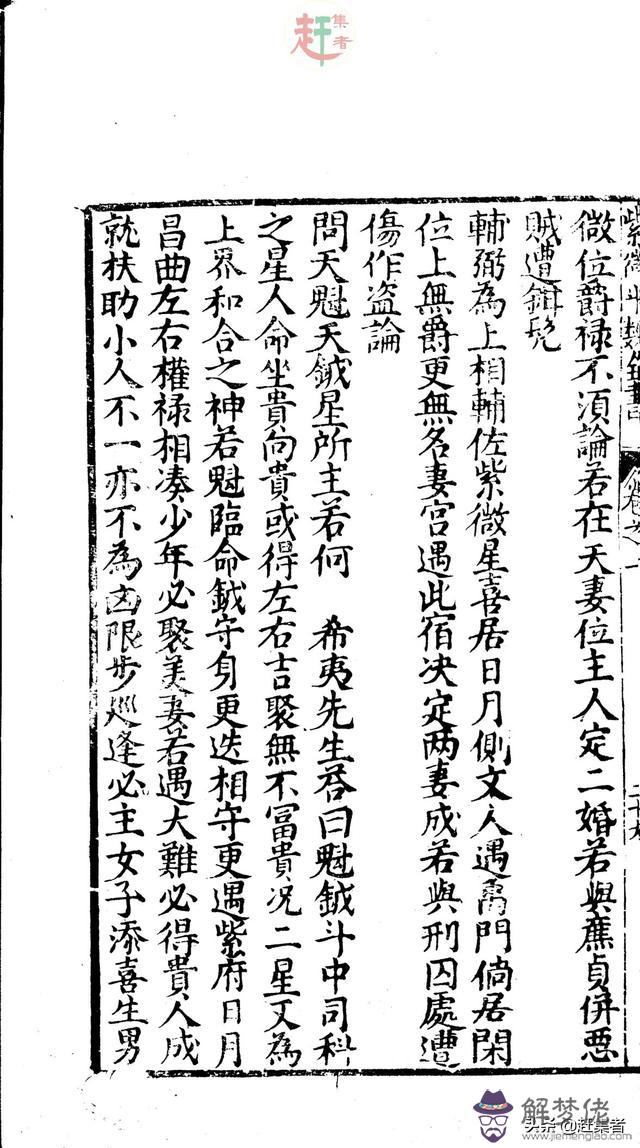 集者
赶
紫微斗數全書 卷之一
二十九
微位爵禄不須論若在天妻位主人定二婚若與廉貞併惡
賊遭鉗髡
輔弼為上相輔佐紫微星喜居日月側文人遇禹門倘居閑
位上無爵更無名妻宮遇此宿决定两妻成若與刑囚處遭
傷作盗論
問天魁天鉞星所主若何 希夷先生荅曰魁鉞斗中司科
之星人命坐貴向貴或得左右吉聚無不冨貴况二星又為
上界和合之神若魁臨命鉞守身更迭相守更遇紫府日月
昌曲左右權禄相凑少年必聚美妻若遇大難必得貴人成
就扶助小人不一亦不為凶限步巡逢必主女子添喜生男
解梦佬
www.jiemenglao.com
头条@赶集者